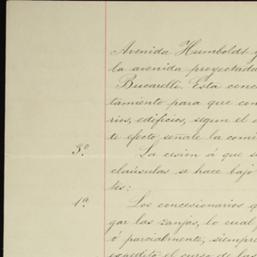 Avenida Humboldt y
la avenida proyectada
Bucarelli. Esta conce
tamiento para que con
rios, edificios, segun el
te efecto señale la comi
3º La cesion á que se
cláusulas se hace bajo
tes:
1ª Los concesionarios q
gar las zanjas, lo cual
ó parcialmente, siempre
el curso de las